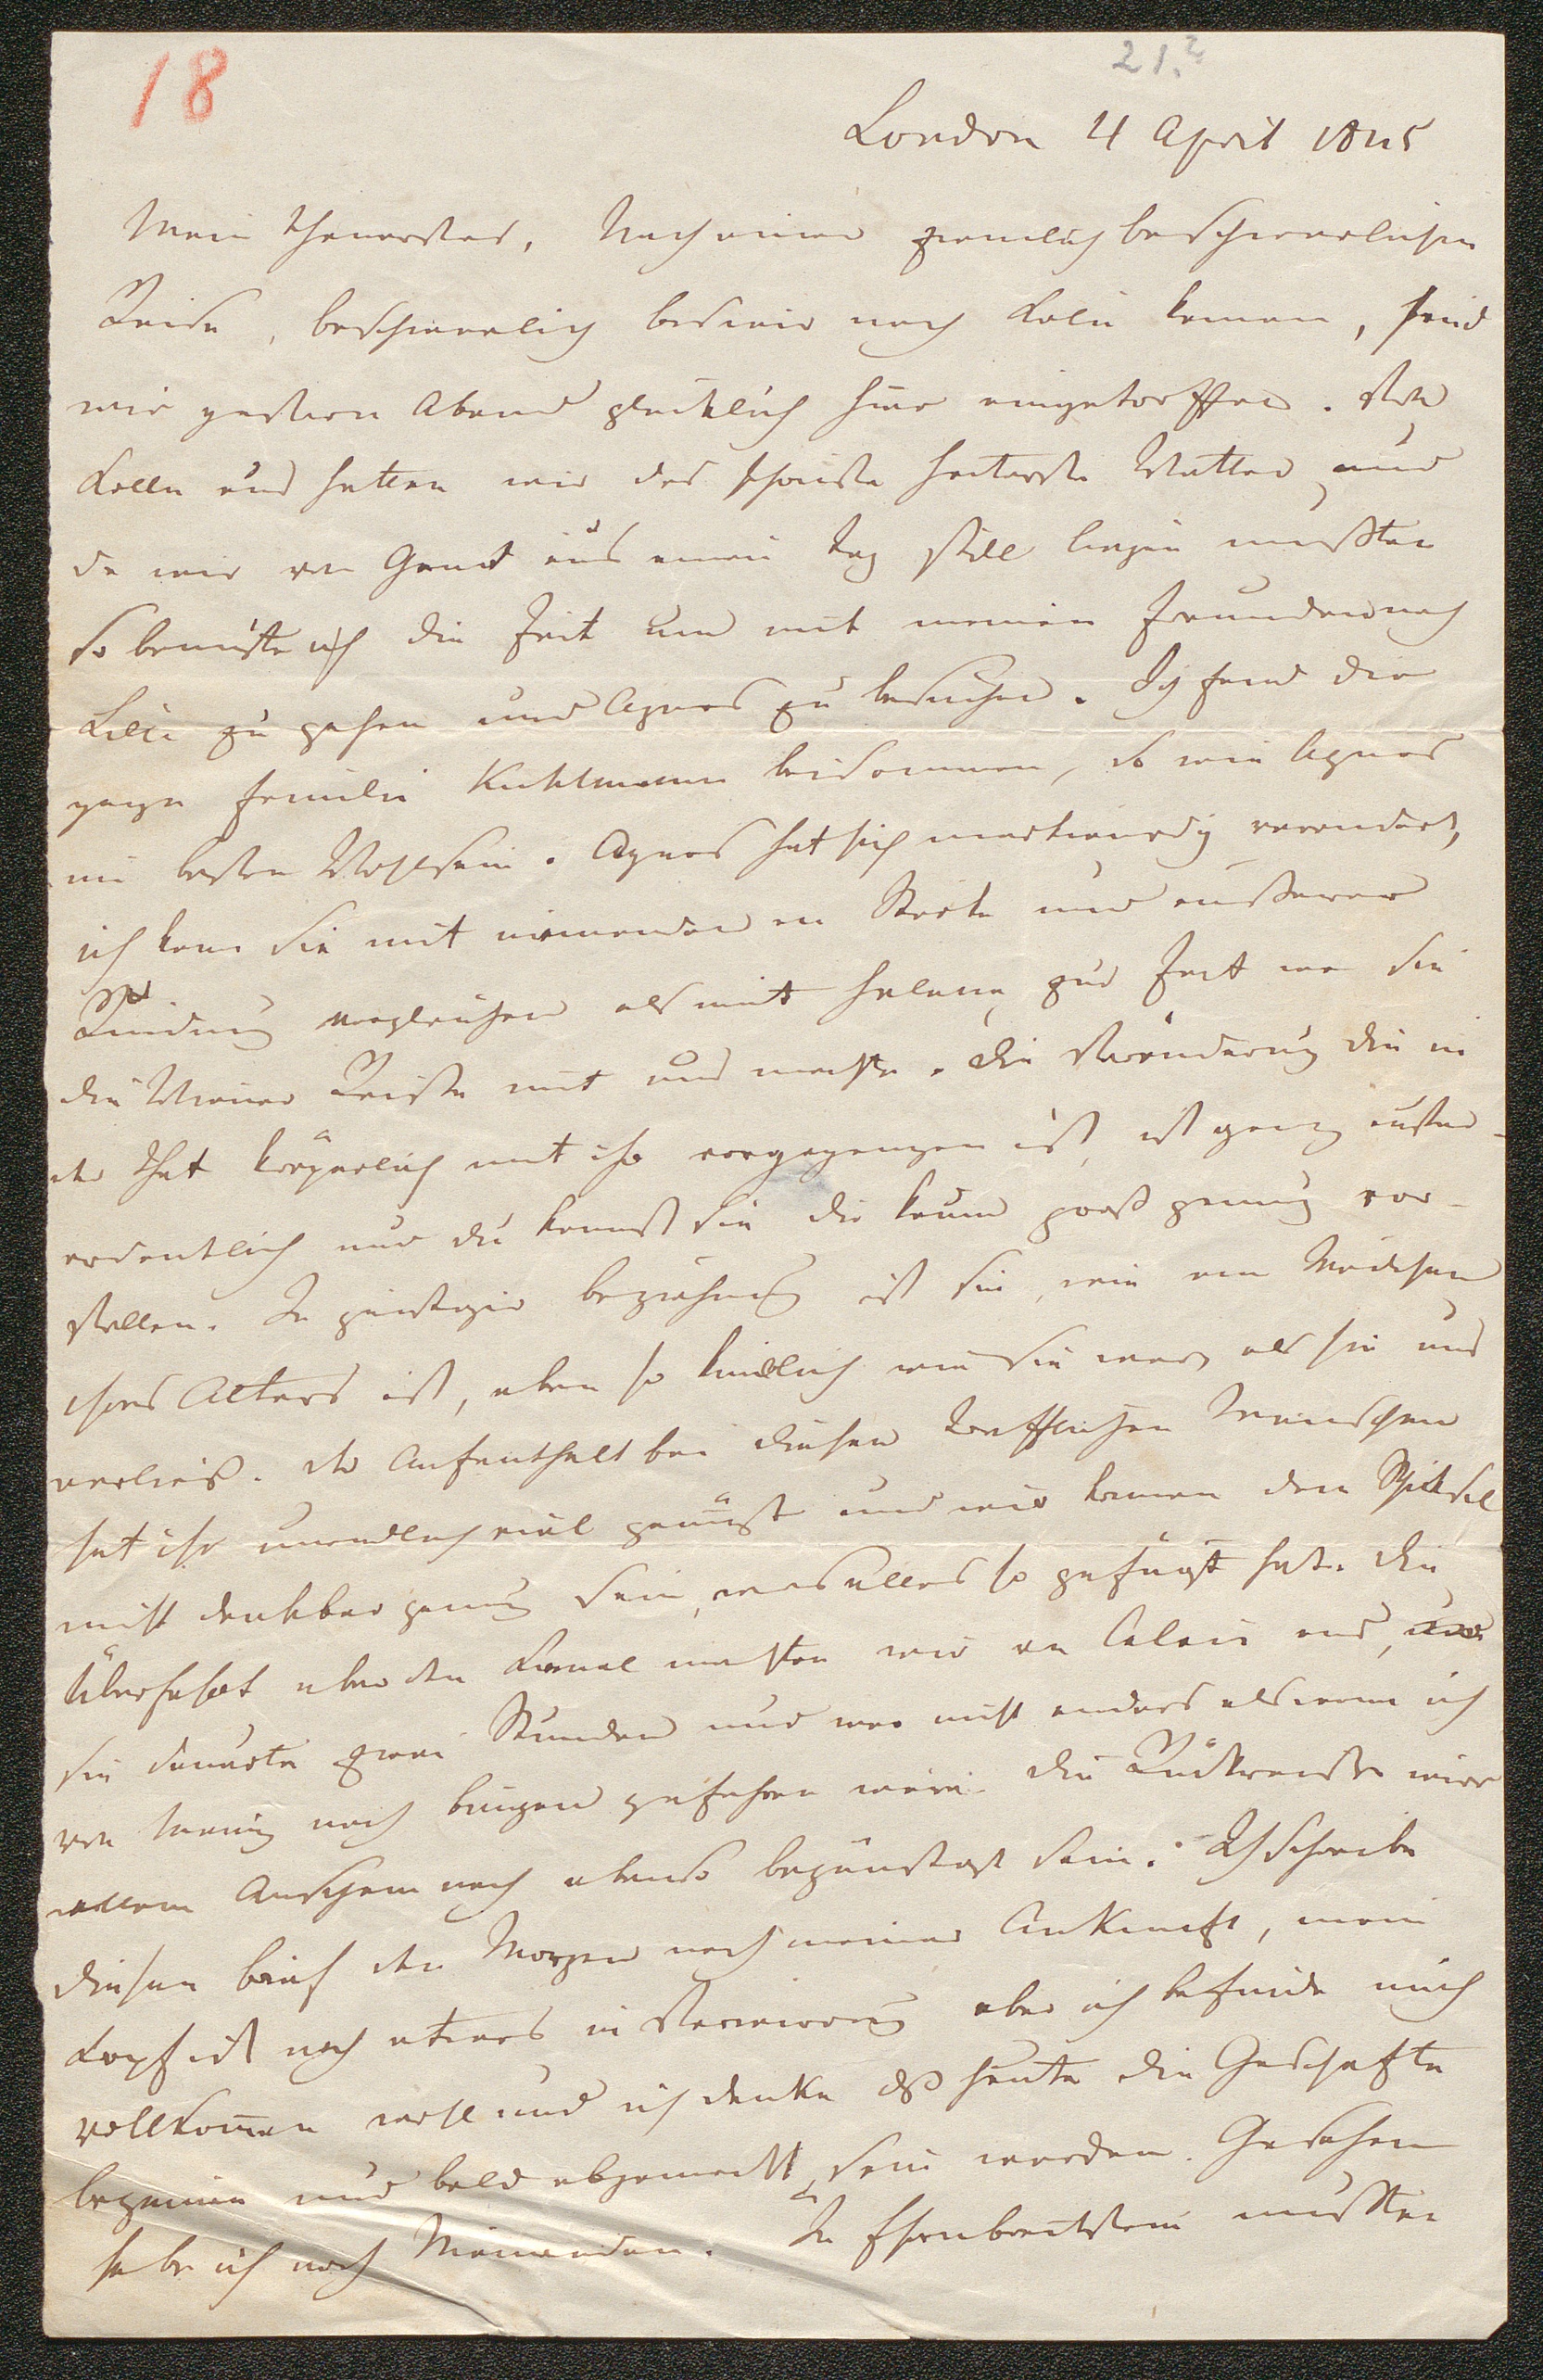 18
21.2
London 4 April 1845
Mein theuerstes, Nach einer ziemlich beschwerlichen
Reise, beschwerlich bis wir nach Köln kamen, sind
wir gestern Abend glücklich hier eingetroffen. Von
Kölln aus hatten wir das schönste heiterste Wetter und
da wir von Gent aus einen Tag still liegen mußten
so benutzte ich die Zeit um mit meinen Freunden nach
Lille zu gehen und Agnes zu besuchen. Ich fand die
ganze Familie Kuhlmann beisammen, so wie Agnes
im besten Wohlsein. Agnes hat sich merkwürdig verändert,
ich kann sie mit niemanden an Stärke und äußerer
Rundung vergleichen als mit Helene, zur Zeit wo sie
die Wiener Reise mit uns machte. Die Veränderung die in
der That körperlich mit ihr vorgegangen ist, ist ganz außer-
ordentlich und du kannst sie dir kaum groß genug vor-
stellen. In geistiger Beziehung ist sie, wie ein Mädchen
ihres Alters ist, eben so kindlich wie sie war, als sie uns
verließ. Der Aufenthalt bei diesen trefflichen Menschen
hat ihr unendlich viel genützt und wir können dem Schicksal
nicht dankbar genug sein, was alles so gefügt hat. Die
Überfahrt über den Kanal machten wir von Calais aus,
sie dauerte zwei Stunden und war nicht anders als wenn ich
von Mainz nach Bingen gefahren wäre. Die Rückreise wird
allem Anschein nach ebenso begünstigt sein. Ich schreibe
diesen Brief den Morgen nach meiner Ankunft, mein
Kopf ist noch etwas in Verwirrung aber ich befinde mich
vollkommen wohl und ich denke daß heute die Geschäfte
beginnen und bald abgemacht sein werden. Gesehen
habe ich noch Niemanden. In Ehrenbreitstein mußten